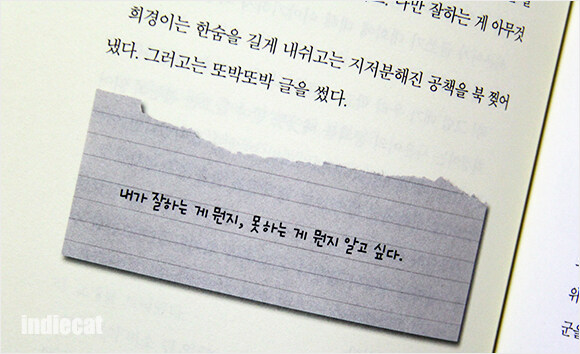 다만 잘하는 게 아무것
희경이는 한숨을 길게 내쉬고는 지저분해진 공책을 북 찢어
냈다. 그러고는 또박또박 글을 썼다.
내가 잘하는 게 뭔지, 못하는 게 뭔지 알고 싶다.
위
군을
indiecat